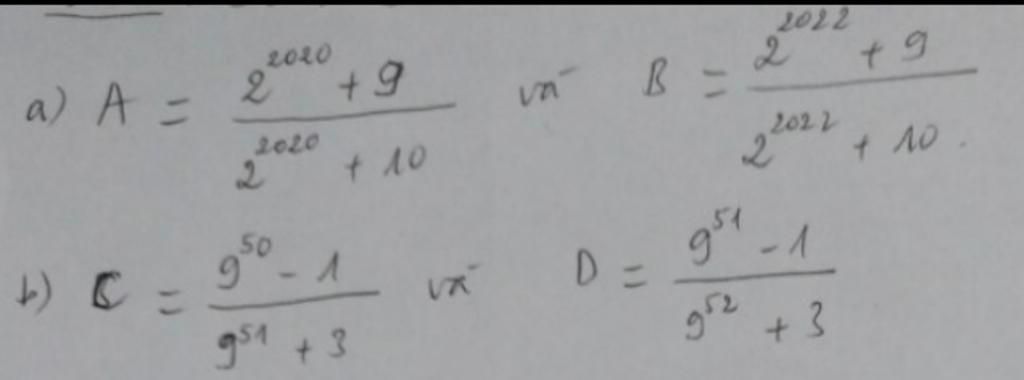 a) A = \frac{2^{2020} + 9}{2^{2020} + 10} và B = \frac{2^{2022} + 9}{2^{2022} + 10}.
b) C = \frac{9^{50} - 1}{9^{51} + 3} và D = \frac{9^{51} - 1}{9^{52} + 3}